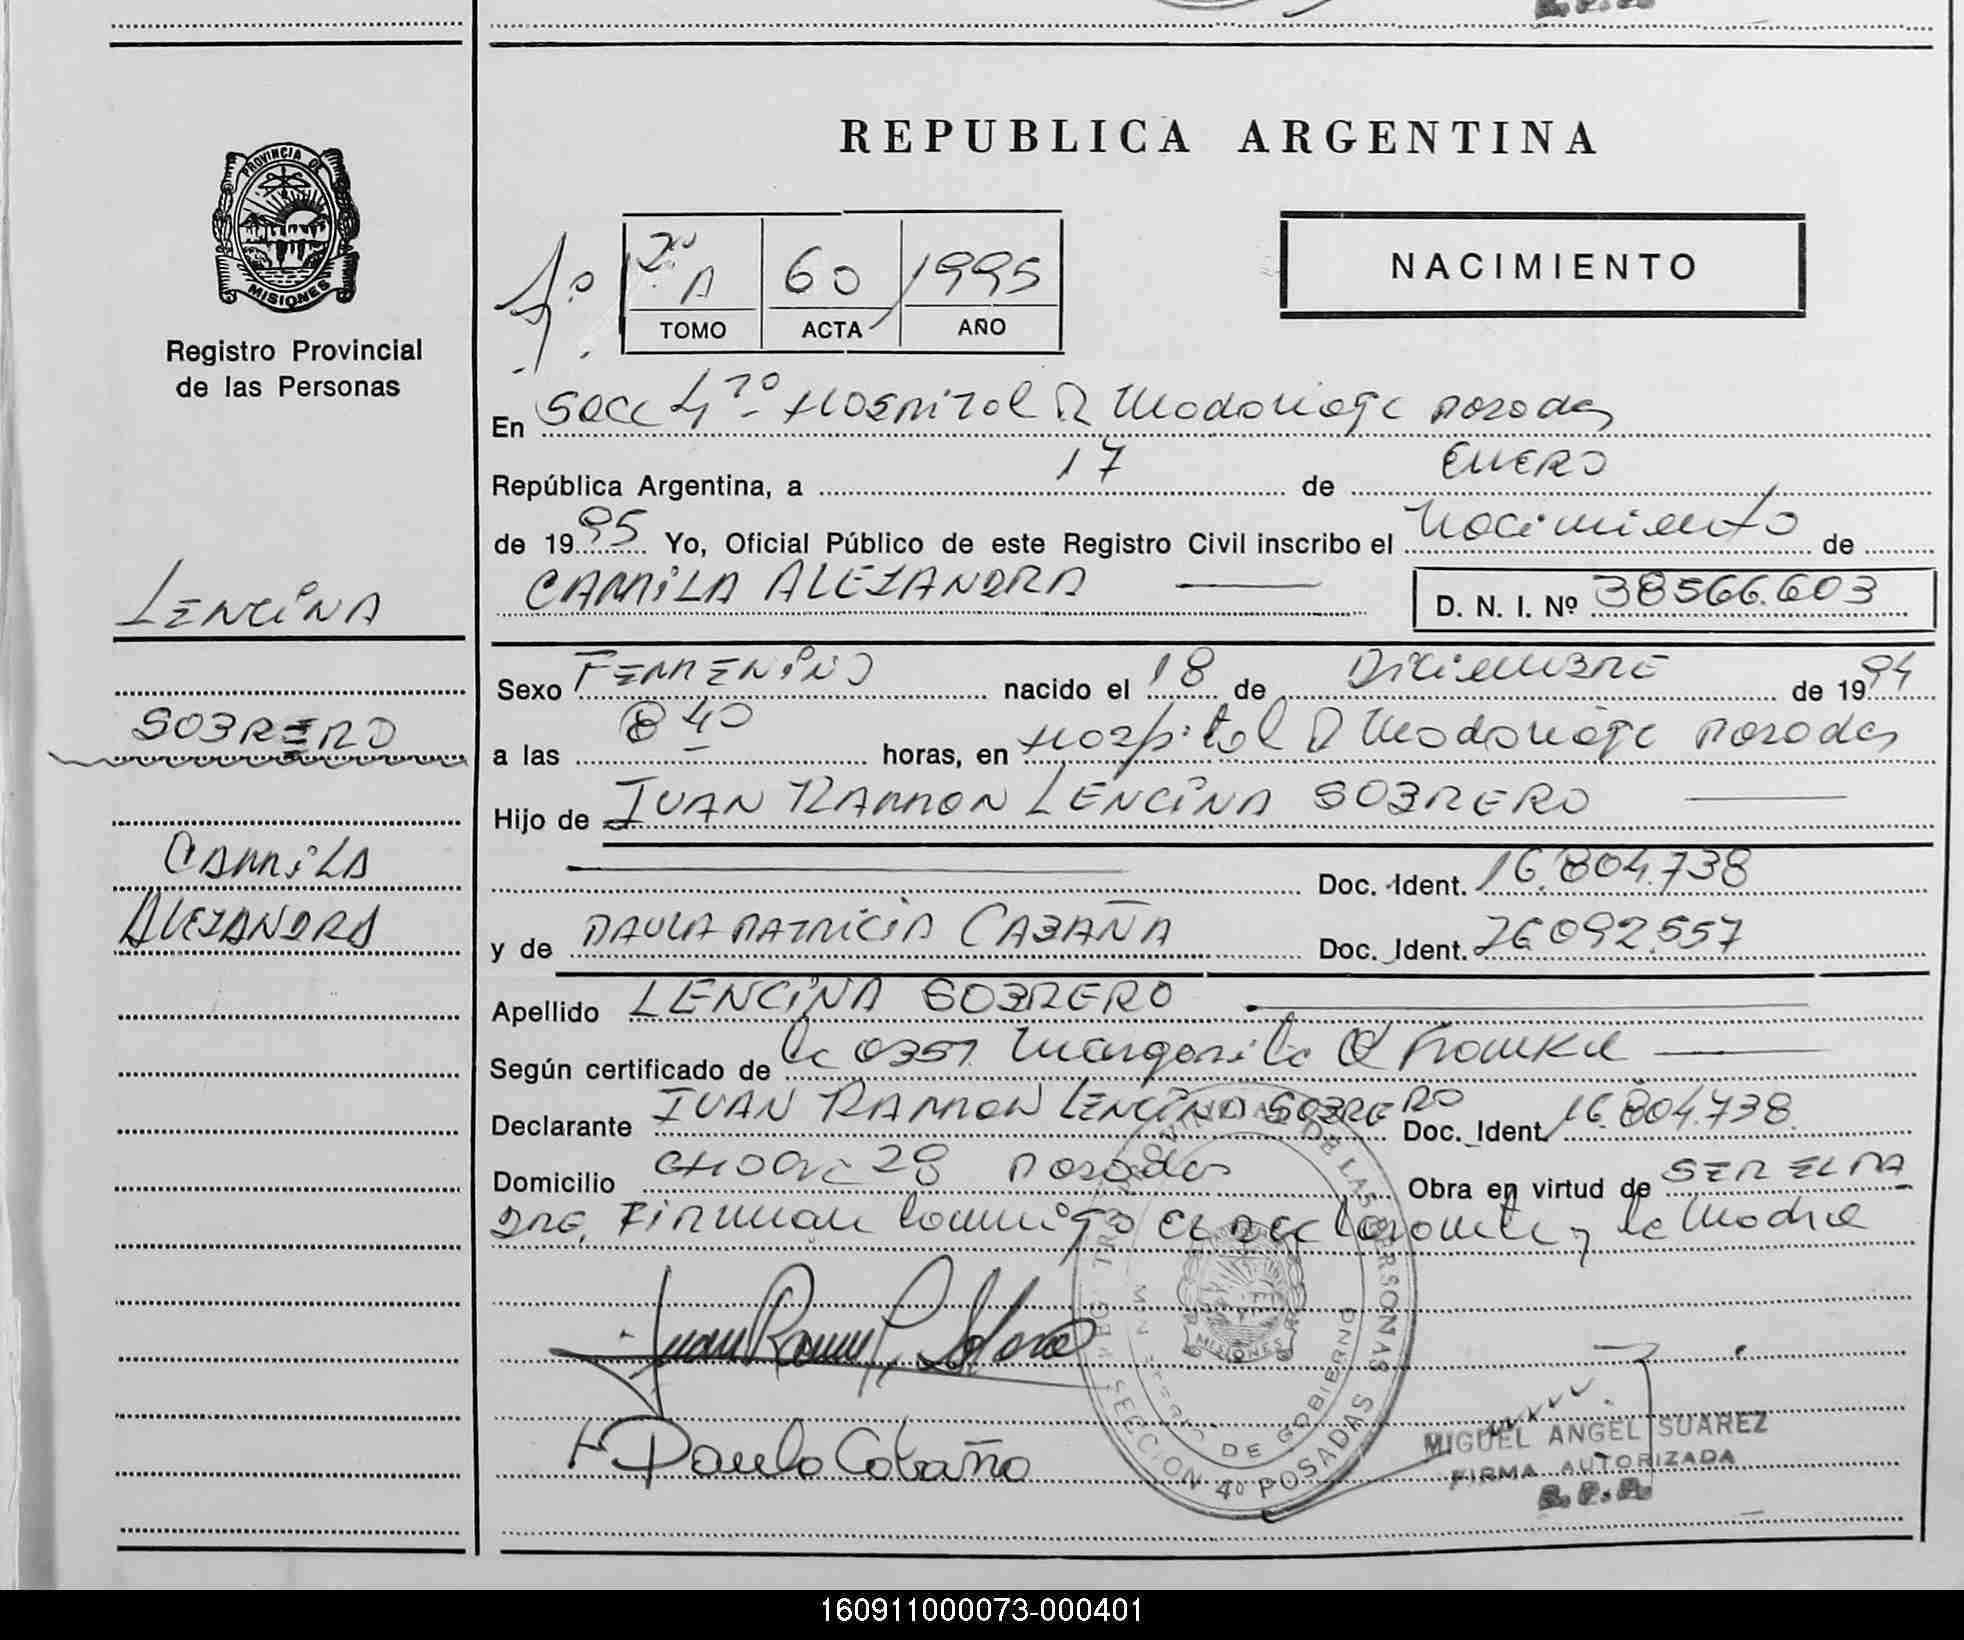 REPUBLICA ARGENTINA
PROVINCIA DE
MISIONES
Registro Provincial
de las Personas
4º
2º A 60 1995
TOMO ACTA AÑO
NACIMIENTO
En Secc 4º Hospital R Madariaga Posadas
República Argentina, a 17 de ENERO
de 1995 Yo, Oficial Público de este Registro Civil inscribo el Nacimiento de
CAMILA ALEJANDRA D. N. I. Nº 38566.603
LENCINA
SOBRERO
CAMILA
ALEJANDRA
Sexo FEMENINO nacido el 18 de Diciembre de 1994
a las 8 40 horas, en Hospital R Madariaga Posadas
Hijo de JUAN RAMON LENCINA SOBRERO
Doc. Ident. 16.804.738
y de PAULA PATRICIA CABAÑA Doc. Ident. 26.092.557
Apellido LENCINA SOBRERO
Según certificado de la Obst. Margarita
Declarante JUAN RAMON LENCINA SOBRERO Doc. Ident. 16.804.738
Domicilio 28 Posadas Obra en virtud de SER EL PA
DRE, Firman conmigo el declarante y la Madre
Paula Cabaña
REG. PROVINCIAL DE LAS PERSONAS
SECCION 4º POSADAS
MINISTERIO DE GOBIERNO
MISIONES
MIGUEL ANGEL SUAREZ
FIRMA AUTORIZADA
R.P.P.
160911000073-000401